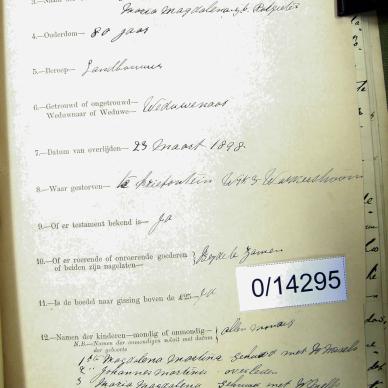 Maria Magdalena geb. Potgieter
4.—Ouderdom— 80 jaar
5.—Beroep— Landbouwer
6.—Getrouwd of ongetrouwd—
Weduwnaar of Weduwe— Weduwenaar
7.—Datum van overlijden— 23 Maart 1898
8.—Waar gestorven— te Wyk 3
9.—Of er testament bekend is— Ja
10.—Of er roerende of onroerende goederen
of beiden zijn nagelaten— Beide te zamen
11.—Is de boedel naar gissing boven de £25— Ja
0/14295
12.—Namen der kinderen—mondig of onmondig— allen mondig
N.B.—Namen der onmondigen moet met datum
der geboorte
1 Magdalena Martina gehuwd met
2 Johannes Martinus overleden
3 Maria Magdalena gehuwd met